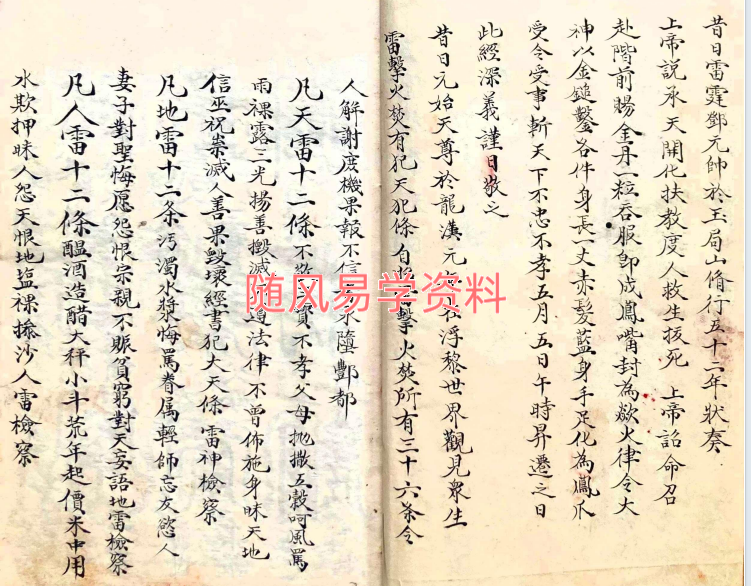 昔日雷霆鄧元帥於玉局山脩行五十二年狀奏
上帝説承天開化扶教度人救生拔死 上帝詔命召
赴階前賜金丹一粒吞服即成鳳嘴封為歘火律令大
神以金鎚鑿各件身長一丈赤髮藍身手足化為鳳爪
受令受事斬天下不忠不孝五月五日午時昇遷之日
此經深義謹日敬之
昔日元始天尊於龍漢元 浮黎世界觀見衆生
雷擊火焚有犯天犯條自 擊火焚所有三十六条令
人解謝度機果報不信 永墮酆都
凡天雷十二條不敬 寳不孝父母抛撒五穀呵風罵
雨裸露三光揚善毀滅 道法律不曾佈施身昧天地
信巫祝祟滅人善果毀壞經書犯大天條雷神檢察
凡地雷十二条污濁水漿悔罵眷属輕師忘友慾人
妻子對聖悔愿怨恨宗親不賑貧窮對天妄語地雷檢察
凡人雷十二條醖酒造醋大秤小斗荒年起價米中用
水欺押昧人怨天恨地盐裸撡沙人雷檢察
随风易学资料